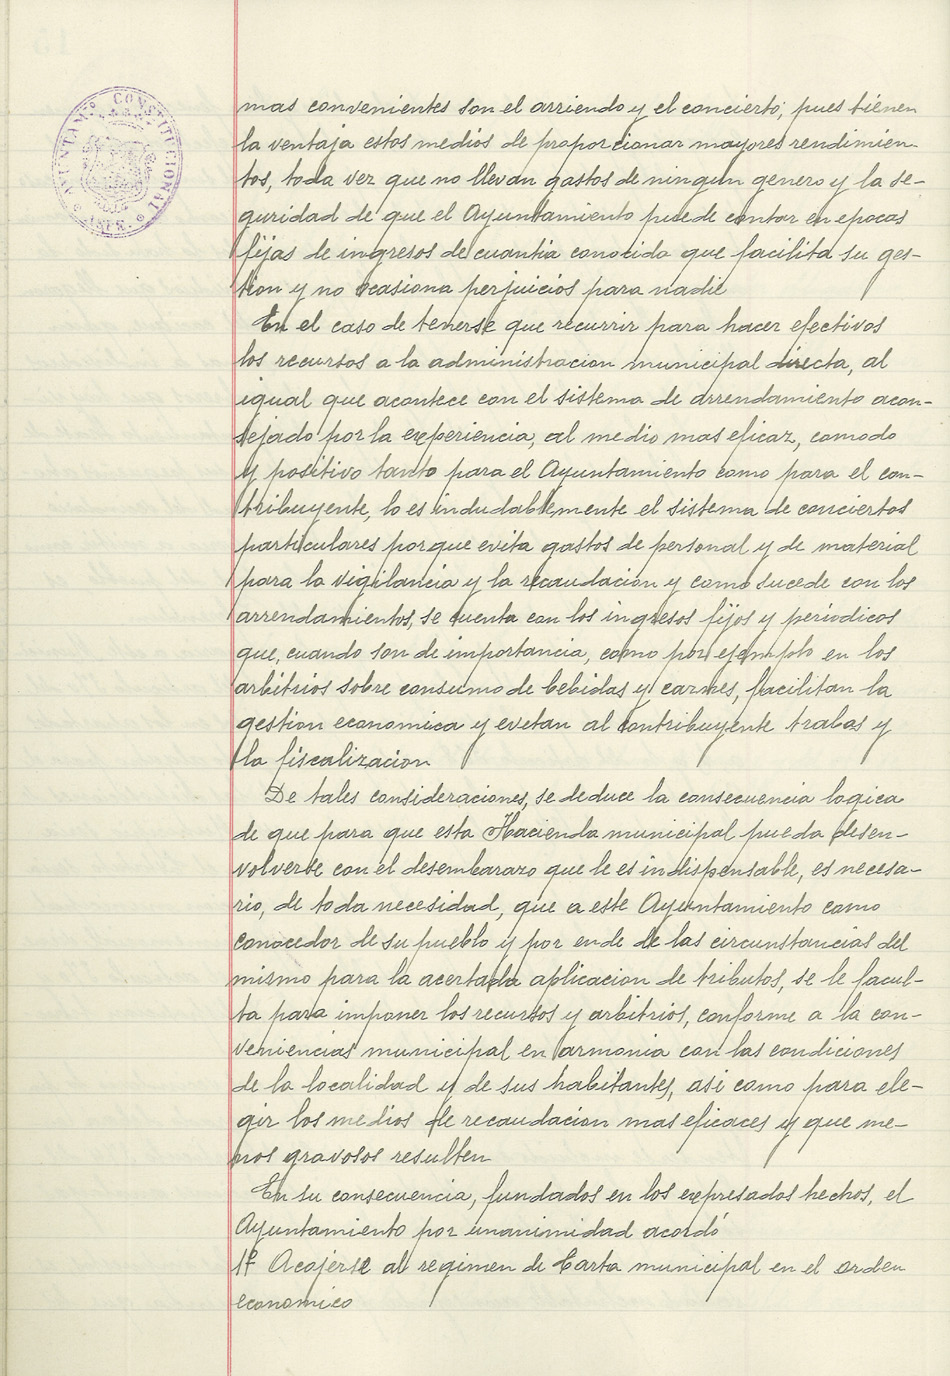 AYUNTAMTO CONSTITUCIONAL
mas convenientes son el arriendo y el concierto; pues tienen
la ventaja estos medios de proporcionar mayores rendimien-
tos, toda vez que no llevan gastos de ningun genero y la se-
guridad de que el Ayuntamiento puede contar en epocas
fijas de ingresos de cuantia conocida que facilita su ges-
tion y no ocasiona perjuicios para nadie
En el caso de tenerse que recurrir para hacer efectivos
los recursos a la administracion municipal directa, al
igual que acontece con el sistema de arrendamiento acon-
sejado por la experiencia, al medio mas eficaz, comodo
y positivo tanto para el Ayuntamiento como para el con-
tribuyente, lo es indudablemente el sistema de conciertos
particulares porque evita gastos de personal y de material
para la vigilancia y la recaudacion y como sucede con los
arrendamientos, se cuenta con los ingresos fijos y periodicos
que, cuando son de importancia, como por ejemplo en los
arbitrios sobre consumo de bebidas y carnes, facilitan la
gestion economica y evetan al contribuyente trabas y
la fiscalizacion
De tales consideraciones, se deduce la consecuencia logica
de que para que esta Hacienda municipal pueda desen-
volverse con el desembarazo que le es indispensable, es necesa-
rio, de toda necesidad, que a este Ayuntamiento como
conocedor de su pueblo y por ende de las circunstancias del
mismo para la acertada aplicacion de tributos, se le facul-
ta para imponer los recursos y arbitrios, conforme a la con-
veniencias municipal en armonia con las condiciones
de la localidad y de sus habitantes, asi como para ele-
gir los medios de recaudacion mas eficaces y que me-
nos gravosos resulten
En su consecuencia, fundados en los expresados hechos, el
Ayuntamiento por unanimidad acordó
1º Acojerse al regimen de Carta municipal en el orden
economico